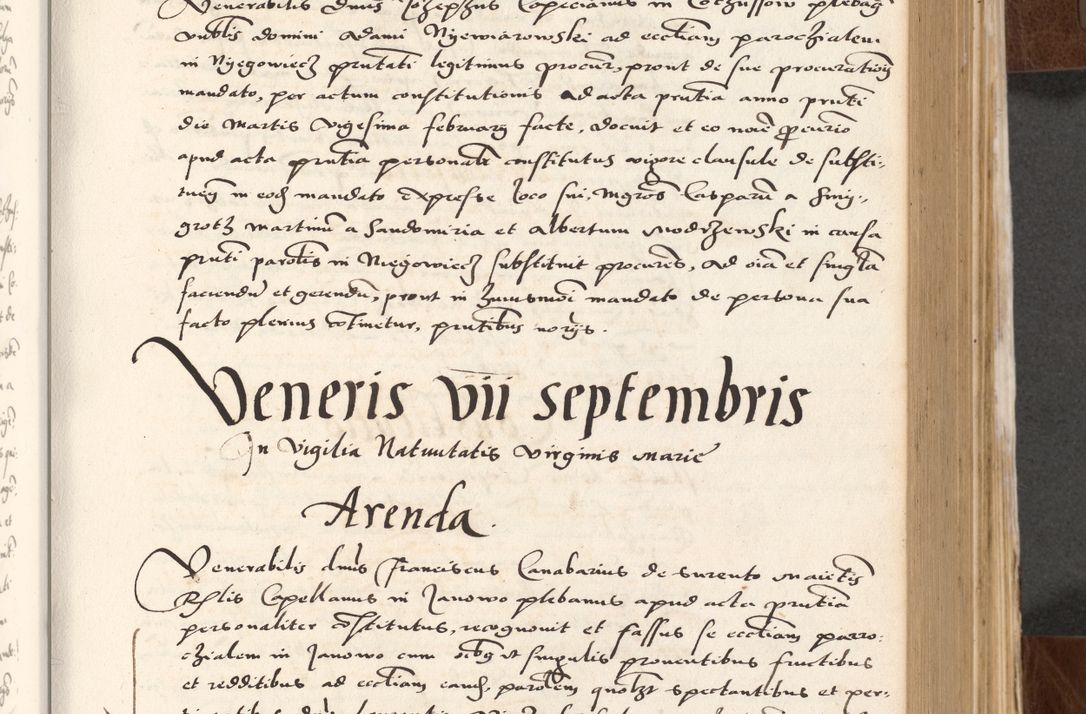 Venerabilis dnus Jozephus Capecianus in Coczussow pleban
nublis domini Adami Nyewiarowski ad eccliam parochialem
in Nyegowiecz pntati legitimus procur, prout de sue procurationis
mandato, per actum constitutionis ad acta pntia anno pnti
die Martis vigesima februarij facte, docuit et eo noie procurio
apud acta pntia personalr constitutus vigore clausule de substi-
tuen in eod mandato expresse loco sui, Mgros Casparu a Smy-
grotz Martinu a Sandomiria et Albertum Modrzewski in causa
pnti parolis in Niegowiecz substituit procures, ad oia et singla
faciendu et gerendu, prout in huiusmoi mandato de persona sua
facto plenius cotinetur, pntibus noriis.
Veneris vii septembris
In vigilia Natiuitatis virginis Marie
Arenda.
Venerabilis dnus Franciscus Canabarius de Surento Maietis
Rglis Capellanus in Janowo plebanus apud acta pntia
personaliter costitutus, recognouit et fassus se eccliam parro-
czialem in Janowo cum oibq et singulis prouentibus fructibus
et redditibus ad eccliam eand, parolem quolzt spectantibus et per-